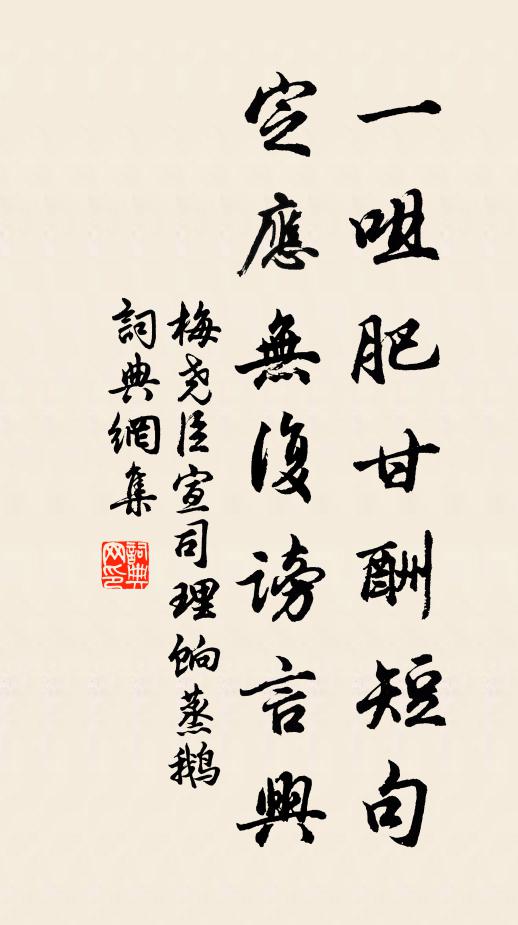 一咀肥甘酬短句
定應無復謗言興
梅尧臣宣司理餉蒸鹅
詞典網集
詞典网印